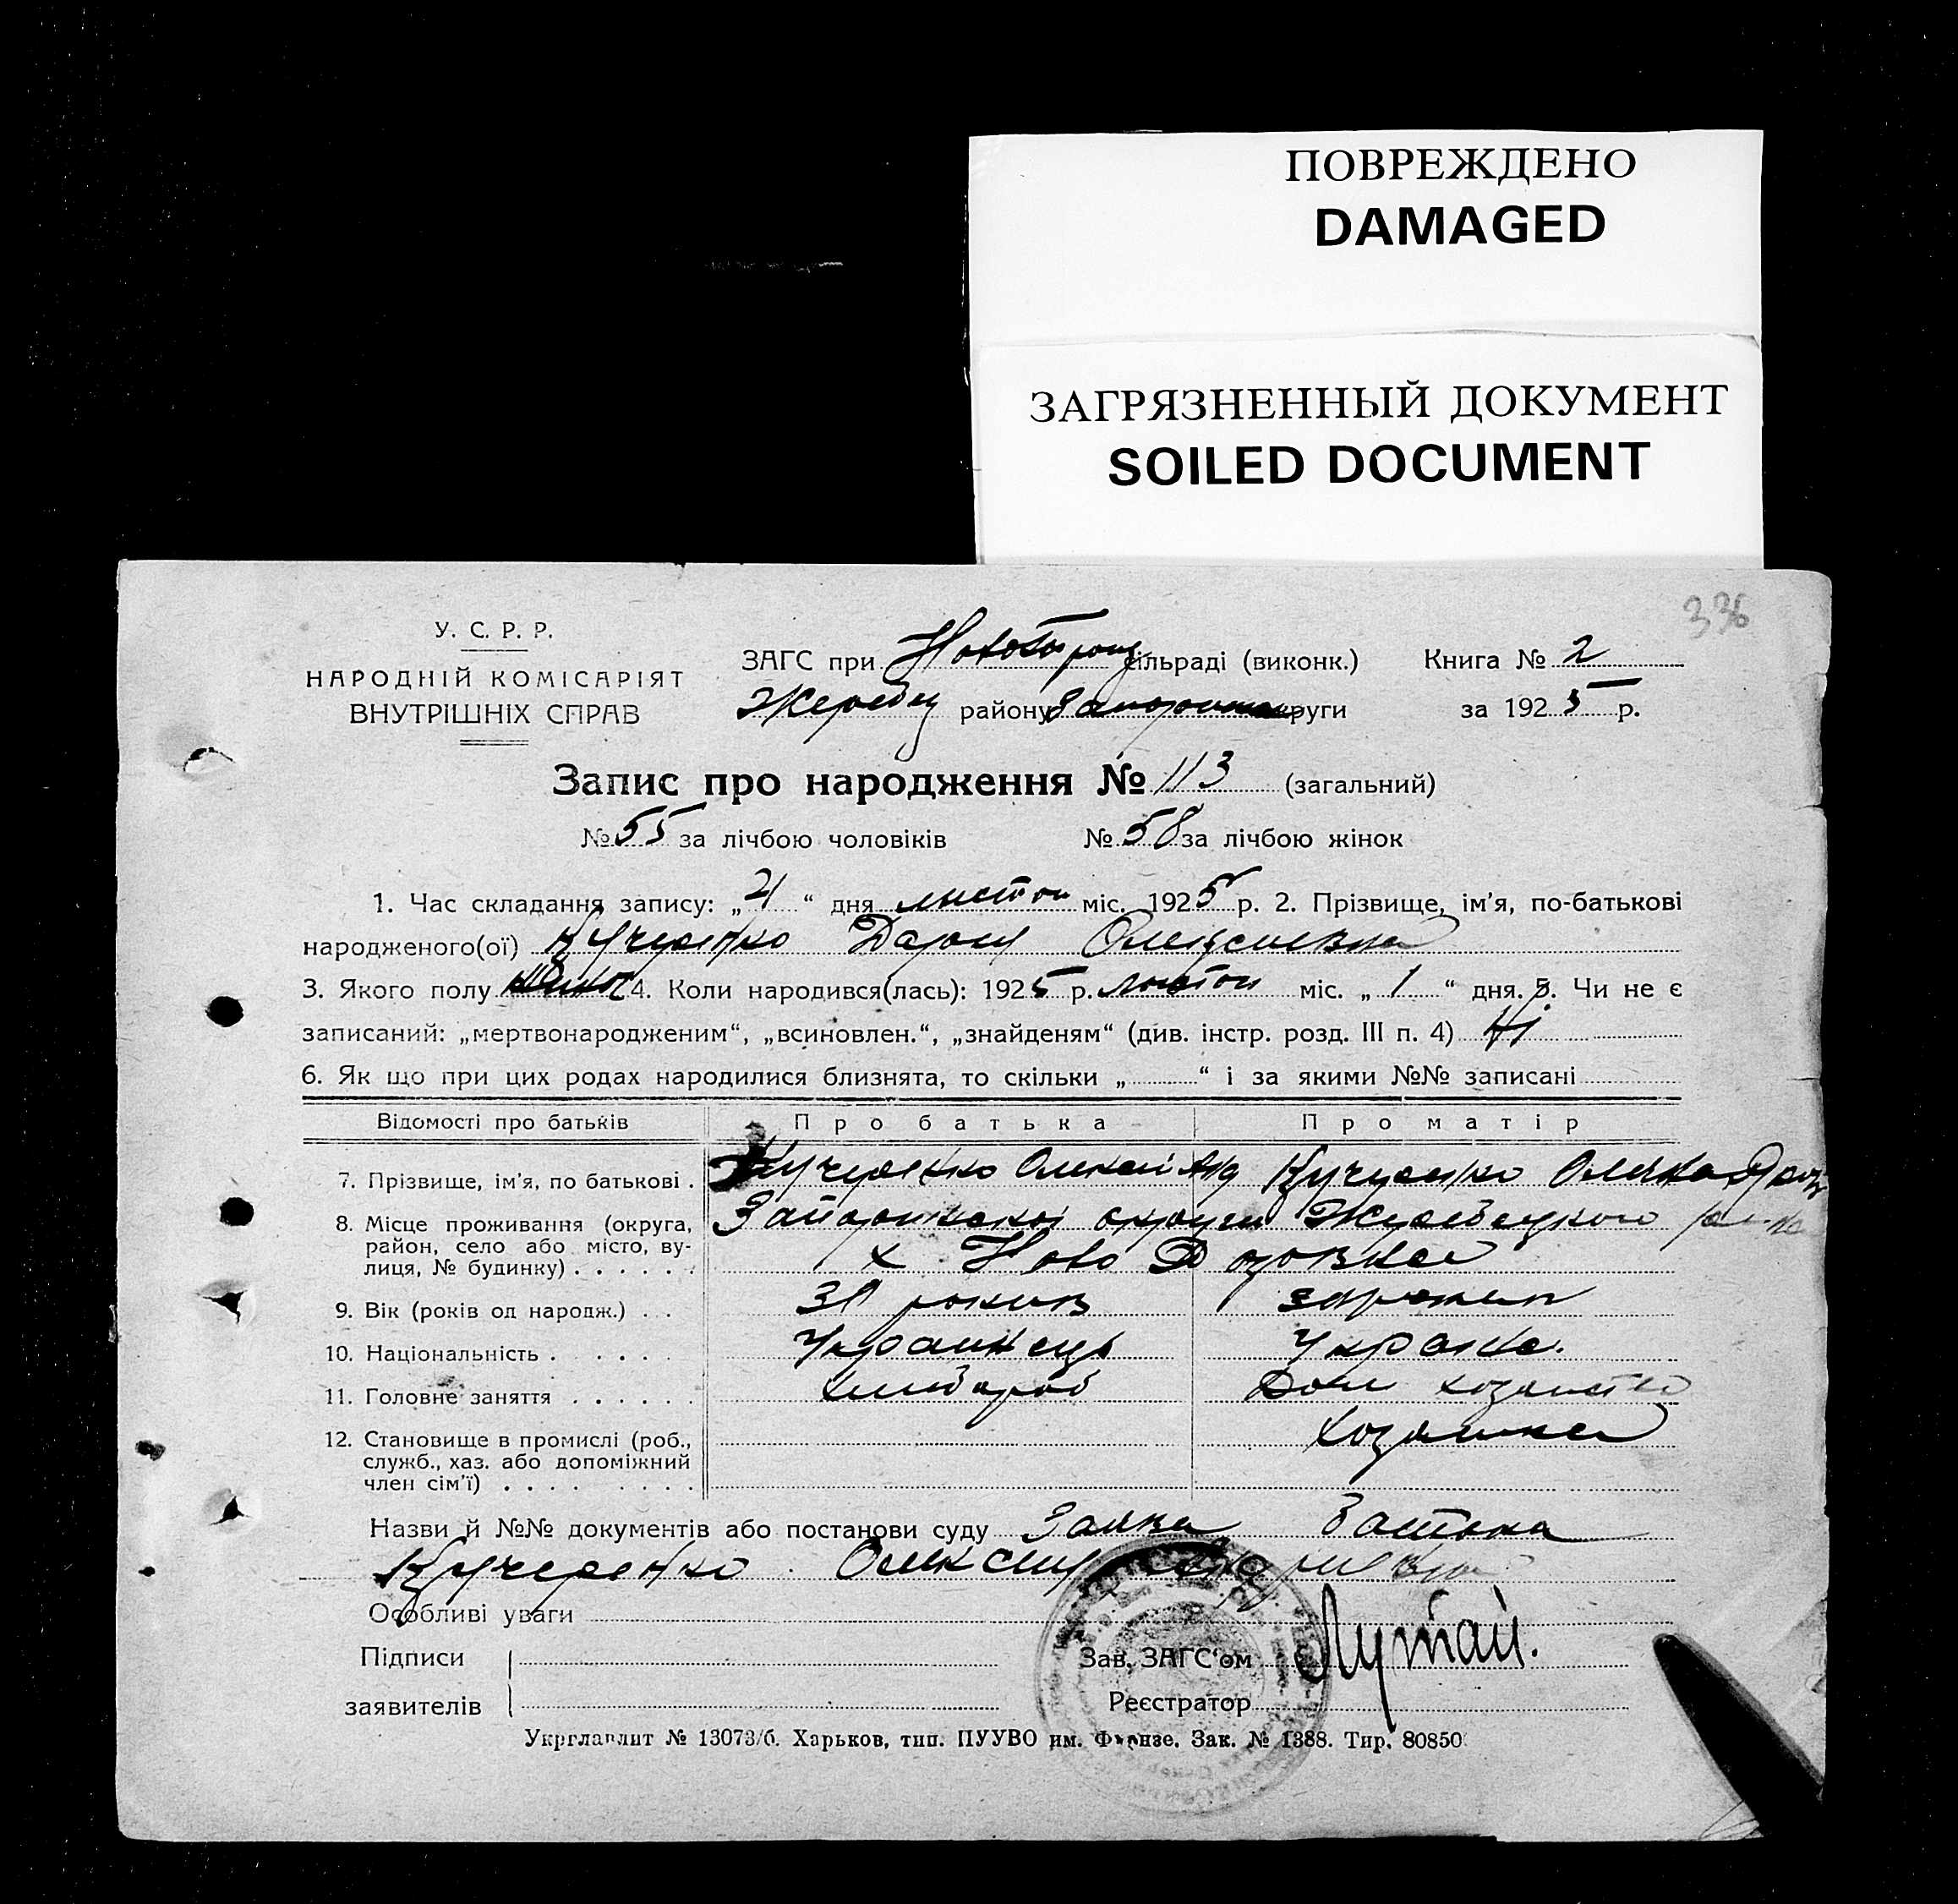 ПОВРЕЖДЕНО
DAMAGED
ЗАГРЯЗНЕННЫЙ ДОКУМЕНТ
SOILED DOCUMENT
336
У. С. Р. Р.
НАРОДНІЙ КОМІСАРІЯТ
ВНУТРІШНІХ СПРАВ
ЗАГС при сільраді (виконк.) Книга № 2
Жеребец району округи за 1925 р.
Запис про народження № 113 (загальний)
№ 55 за лічбою чоловіків № 58 за лічбою жінок
1. Час складання запису: „21“ дня листоп міс. 1925 р. 2. Прізвище, ім'я, по-батькові
народженого(ої) Кучеренко Олексиевна
3. Якого полу 4. Коли народився(лась): 1925 р. листоп міс. „1“ дня. 5. Чи не є
записаний: „мертвонародженим“, „всиновлен.“, „знайденям“ (див. інстр. розд. III п. 4) Ні
6. Як що при цих родах народилися близнята, то скільки „ “ і за якими №№ записані
Відомості про батьків Про батька Про матір
7. Прізвище, ім'я, по батькові . Кучеренко Олексій Кучеренко
8. Місце проживання (округа, район, село або місто, вулиця, № будинку) . . . . . . округи Жеребецкого
х Ново
9. Вік (років од народж.) . . 30 роков
10. Національність . . . . . Украинець Украинка.
11. Головне заняття . . . . . . хлибороб Дом хозяиство
12. Становище в промислі (роб., служб., хаз. або допоміжний член сім'ї) . . . . . . . . хозяика
Назви й №№ документів або постанови суду Заява батька
Кучеренко
Особливі уваги
Підписи
заявителів
Зав. ЗАГС'ом Лутай.
Реєстратор
Укрглавлит № 13073/б. Харьков, тип. ПУУВО им. Фрунзе. Зак. № 1388. Тир. 80850